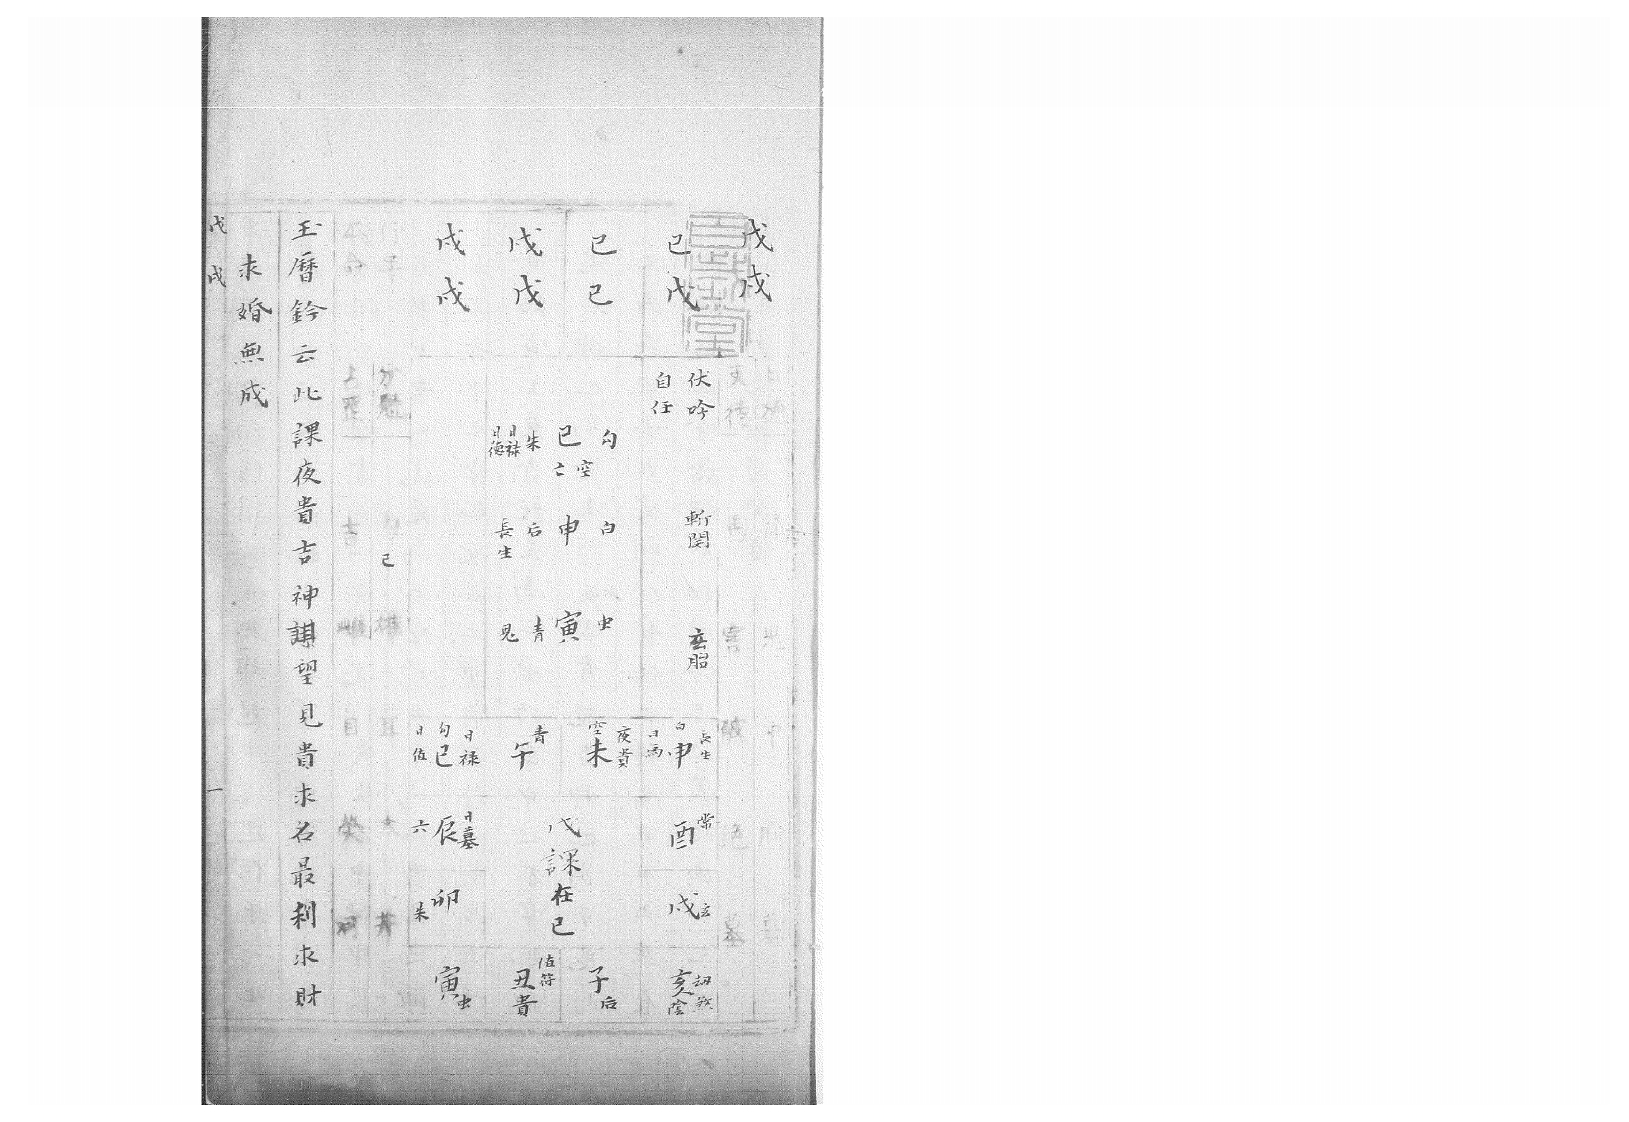 戊戌
巳戊
巳巳
戌戊
戌戌
伏吟
自任
斬関
玄胎
勾
空
巳
亡
朱
日禄
日德
白
申
后
長生
虫
寅
青
鬼
長生
白
申
日丙
夜貴
空
未
青
午
日禄
勾
巳
日值
常
酉
戊課在巳
日墓
辰
六
玄
戌
卯
朱
劫煞
亥
陰
子
后
值符
丑
貴
寅
虫
己
玉曆鈐云此課夜貴吉神謀望見貴求名最利求財
求婚無成
戊戌
一